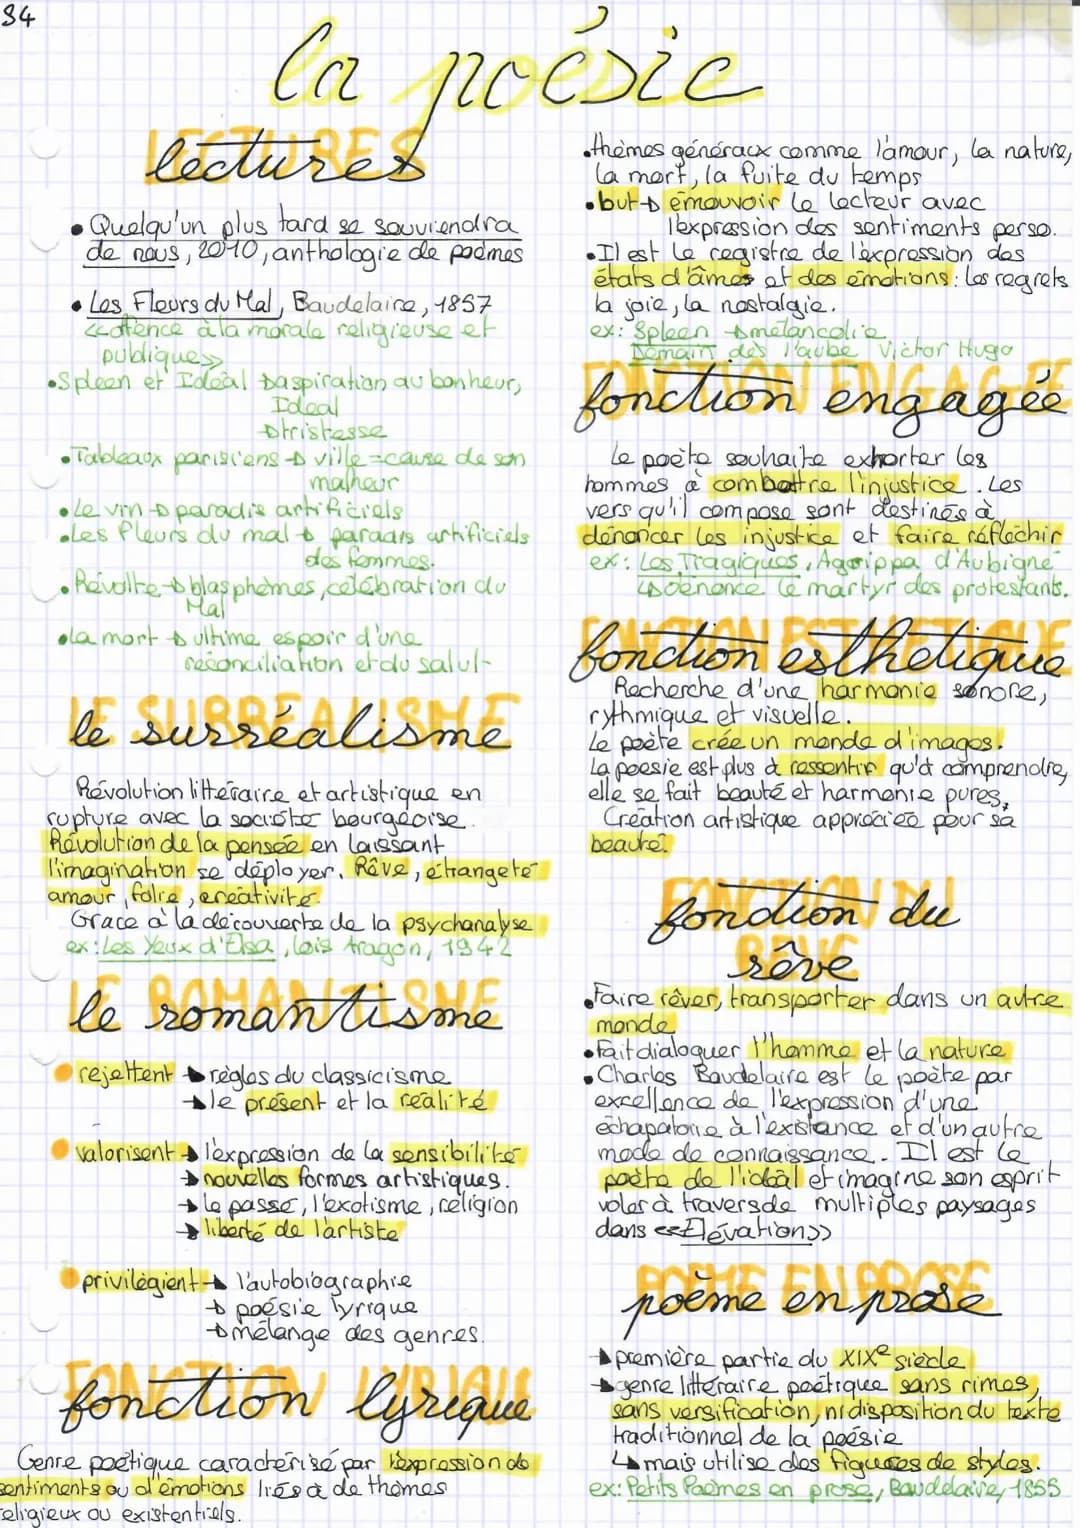 34
la poésie
LECTURES
lectures
• Quelqu'un plus tard se souviendra
de nous, 2010, anthologie de poèmes
• Les Fleurs du Mal, Baudelaire, 1857
<<offence à la morale religieuse et
publique>>
• Spleen et Idéal → aspiration au bonheur,
Idéal
→ tristesse
• Tableaux parisiens → ville = cause de son
malheur
• Le vin → paradis artificiels
• Les Fleurs du mal → paradis artificiels
des femmes.
• Révolte → blasphèmes, célébration du
Mal
• La mort → ultime espoir d'une
réconciliation et du salut
LE SURRÉALISME
le surréalisme
Révolution littéraire et artistique en
rupture avec la société bourgeoise.
Révolution de la pensée en laissant
l'imagination se déployer. Rêve, étrangeté
amour, folie, créativité.
Grace à la découverte de la psychanalyse
ex: Les Yeux d'Elsa, Loïs Aragon, 1942
LE ROMANTISME
le romantisme
rejettent → règles du classicisme
→ le présent et la réalité
valorisent → l'expression de la sensibilité
→ nouvelles formes artistiques.
→ le passé, l'exotisme, religion
→ liberté de l'artiste
privilégient → l'autobiographie
→ poésie lyrique
→ mélange des genres.
FONCTION LYRIQUE
fonction lyrique
Genre poétique caractérisé par l'expression de
sentiments ou d'émotions liés à de thèmes
religieux ou existentiels.
• thèmes généraux comme l'amour, la nature,
la mort, la fuite du temps
• but → émouvoir le lecteur avec
l'expression des sentiments perso.
• Il est le registre de l'expression des
états d'âmes et des émotions: les regrets
la joie, la nostalgie.
ex: Spleen → mélancolie
Demain dès l'aube Victor Hugo
FONCTION ENGAGÉE
fonction engagée
Le poète souhaite exhorter les
hommes à combattre l'injustice. Les
vers qu'il compose sont destinés à
dénoncer les injustice et faire réfléchir
ex: Les Tragiques, Agrippa d'Aubigné
↳ Dénonce le martyr des protestants.
FONCTION ESTHETIQUE
fonction esthétique
Recherche d'une harmonie sonore,
rythmique et visuelle.
Le poète crée un monde d'images.
La poésie est plus à ressentir qu'à comprendre,
elle se fait beauté et harmonie pures.
Création artistique appréciée pour sa
beauté.
FONCTION DU
fonction du
RÊVE
rêve
• Faire rêver, transporter dans un autre
monde
• Fait dialoguer l'homme et la nature
• Charles Baudelaire est le poète par
excellence de l'expression d'une
échapatoire à l'existance et d'un autre
mode de connaissance. Il est le
poète de l'idéal et imagine son esprit
voler à travers de multiples paysages
dans <<Élévation>>
POÈME EN PROSE
poème en prose
→ première partie du XIXe siècle
→ genre littéraire poétique sans rimes,
sans versification, ni disposition du texte
traditionnel de la poésie
↳ mais utilise des figures de styles.
ex: Petits Poèmes en prose, Baudelaire, 1855